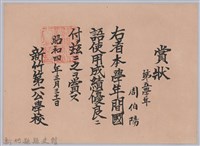 賞狀
第五學年
周伯陽
右者本學年間國
語使用成績優良ニ
付茲ニ之ヲ賞ス
昭和四年三月二十三日
新竹第一公學校